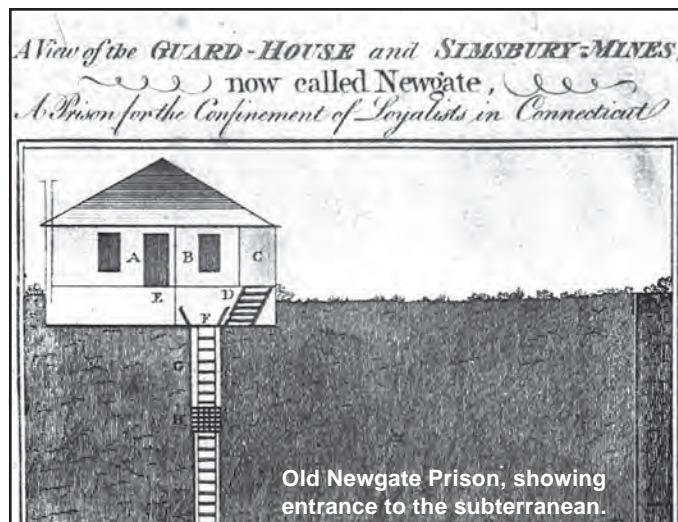 A View of the GUARD-HOUSE and SIMSBURY-MINES,
now called Newgate,
A Prison for the Confinement of Loyalists in Connecticut
A
B
C
E
D
F
G
H
Old Newgate Prison, showing
entrance to the subterranean.